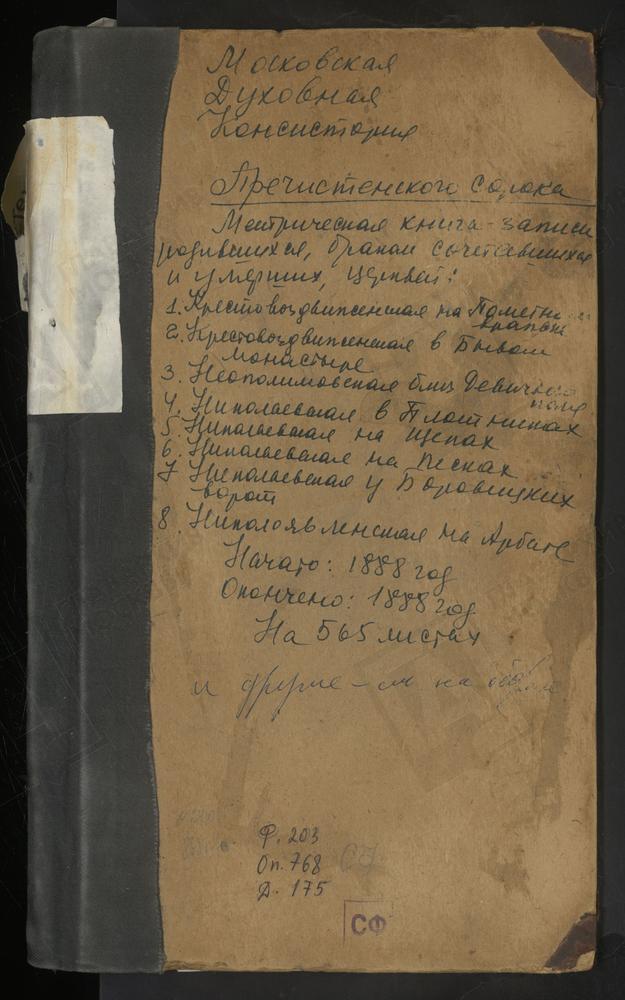 Московская
Духовная
Консистория
Пречистенского сорока
Метрическая книга-записи
родившихся, браком сочетавшихся
и умерших, церквей:
1. Крестовоздвиженская на Пометном
вражке
2. Крестовоздвиженская в Бывшем
монастыре
3. Неополимовская близ Девичьего
поля
4. Николаевская в Плотниках
5. Николаевская на Щепах
6. Николаевская на Песках
7 Николаевская у Боровицких
ворот
8. Николоявленская на Арбате
Начато: 1888 год
Окончено: 1888 год
На 565 листах
и другие - см на
Ф. 203
Оп. 768
Д. 175
СФ